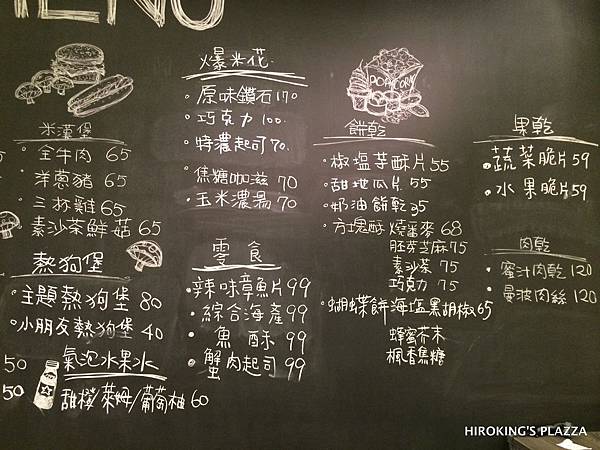 MENU
米漢堡
全牛肉 65
洋蔥豬 65
三杯雞 65
素沙茶鮮菇 65
熱狗堡
主題熱狗堡 80
小朋友熱狗堡 40
50
50
氣泡水果水
甜橙/萊姆/葡萄柚 60
爆米花
原味鑽石 170
巧克力 100
特濃起司 70
焦糖咖滋 70
玉米濃湯 70
零食
辣味章魚片 99
綜合海產 99
魚酥 99
蟹肉起司 99
POPCORN
餅乾
椒塩芋酥片 55
甜地瓜片 55
奶油餅乾 35
方塊酥 燒番麥 68
胚芽芝麻 75
素沙茶 75
巧克力 75
蝴蝶餅 海塩黑胡椒 65
蜂蜜芥末
楓香焦糖
果乾
蔬菜脆片 59
水果脆片 59
肉乾
蜜汁肉乾 120
曼波肉絲 120
HIROKING'S PLAZZA